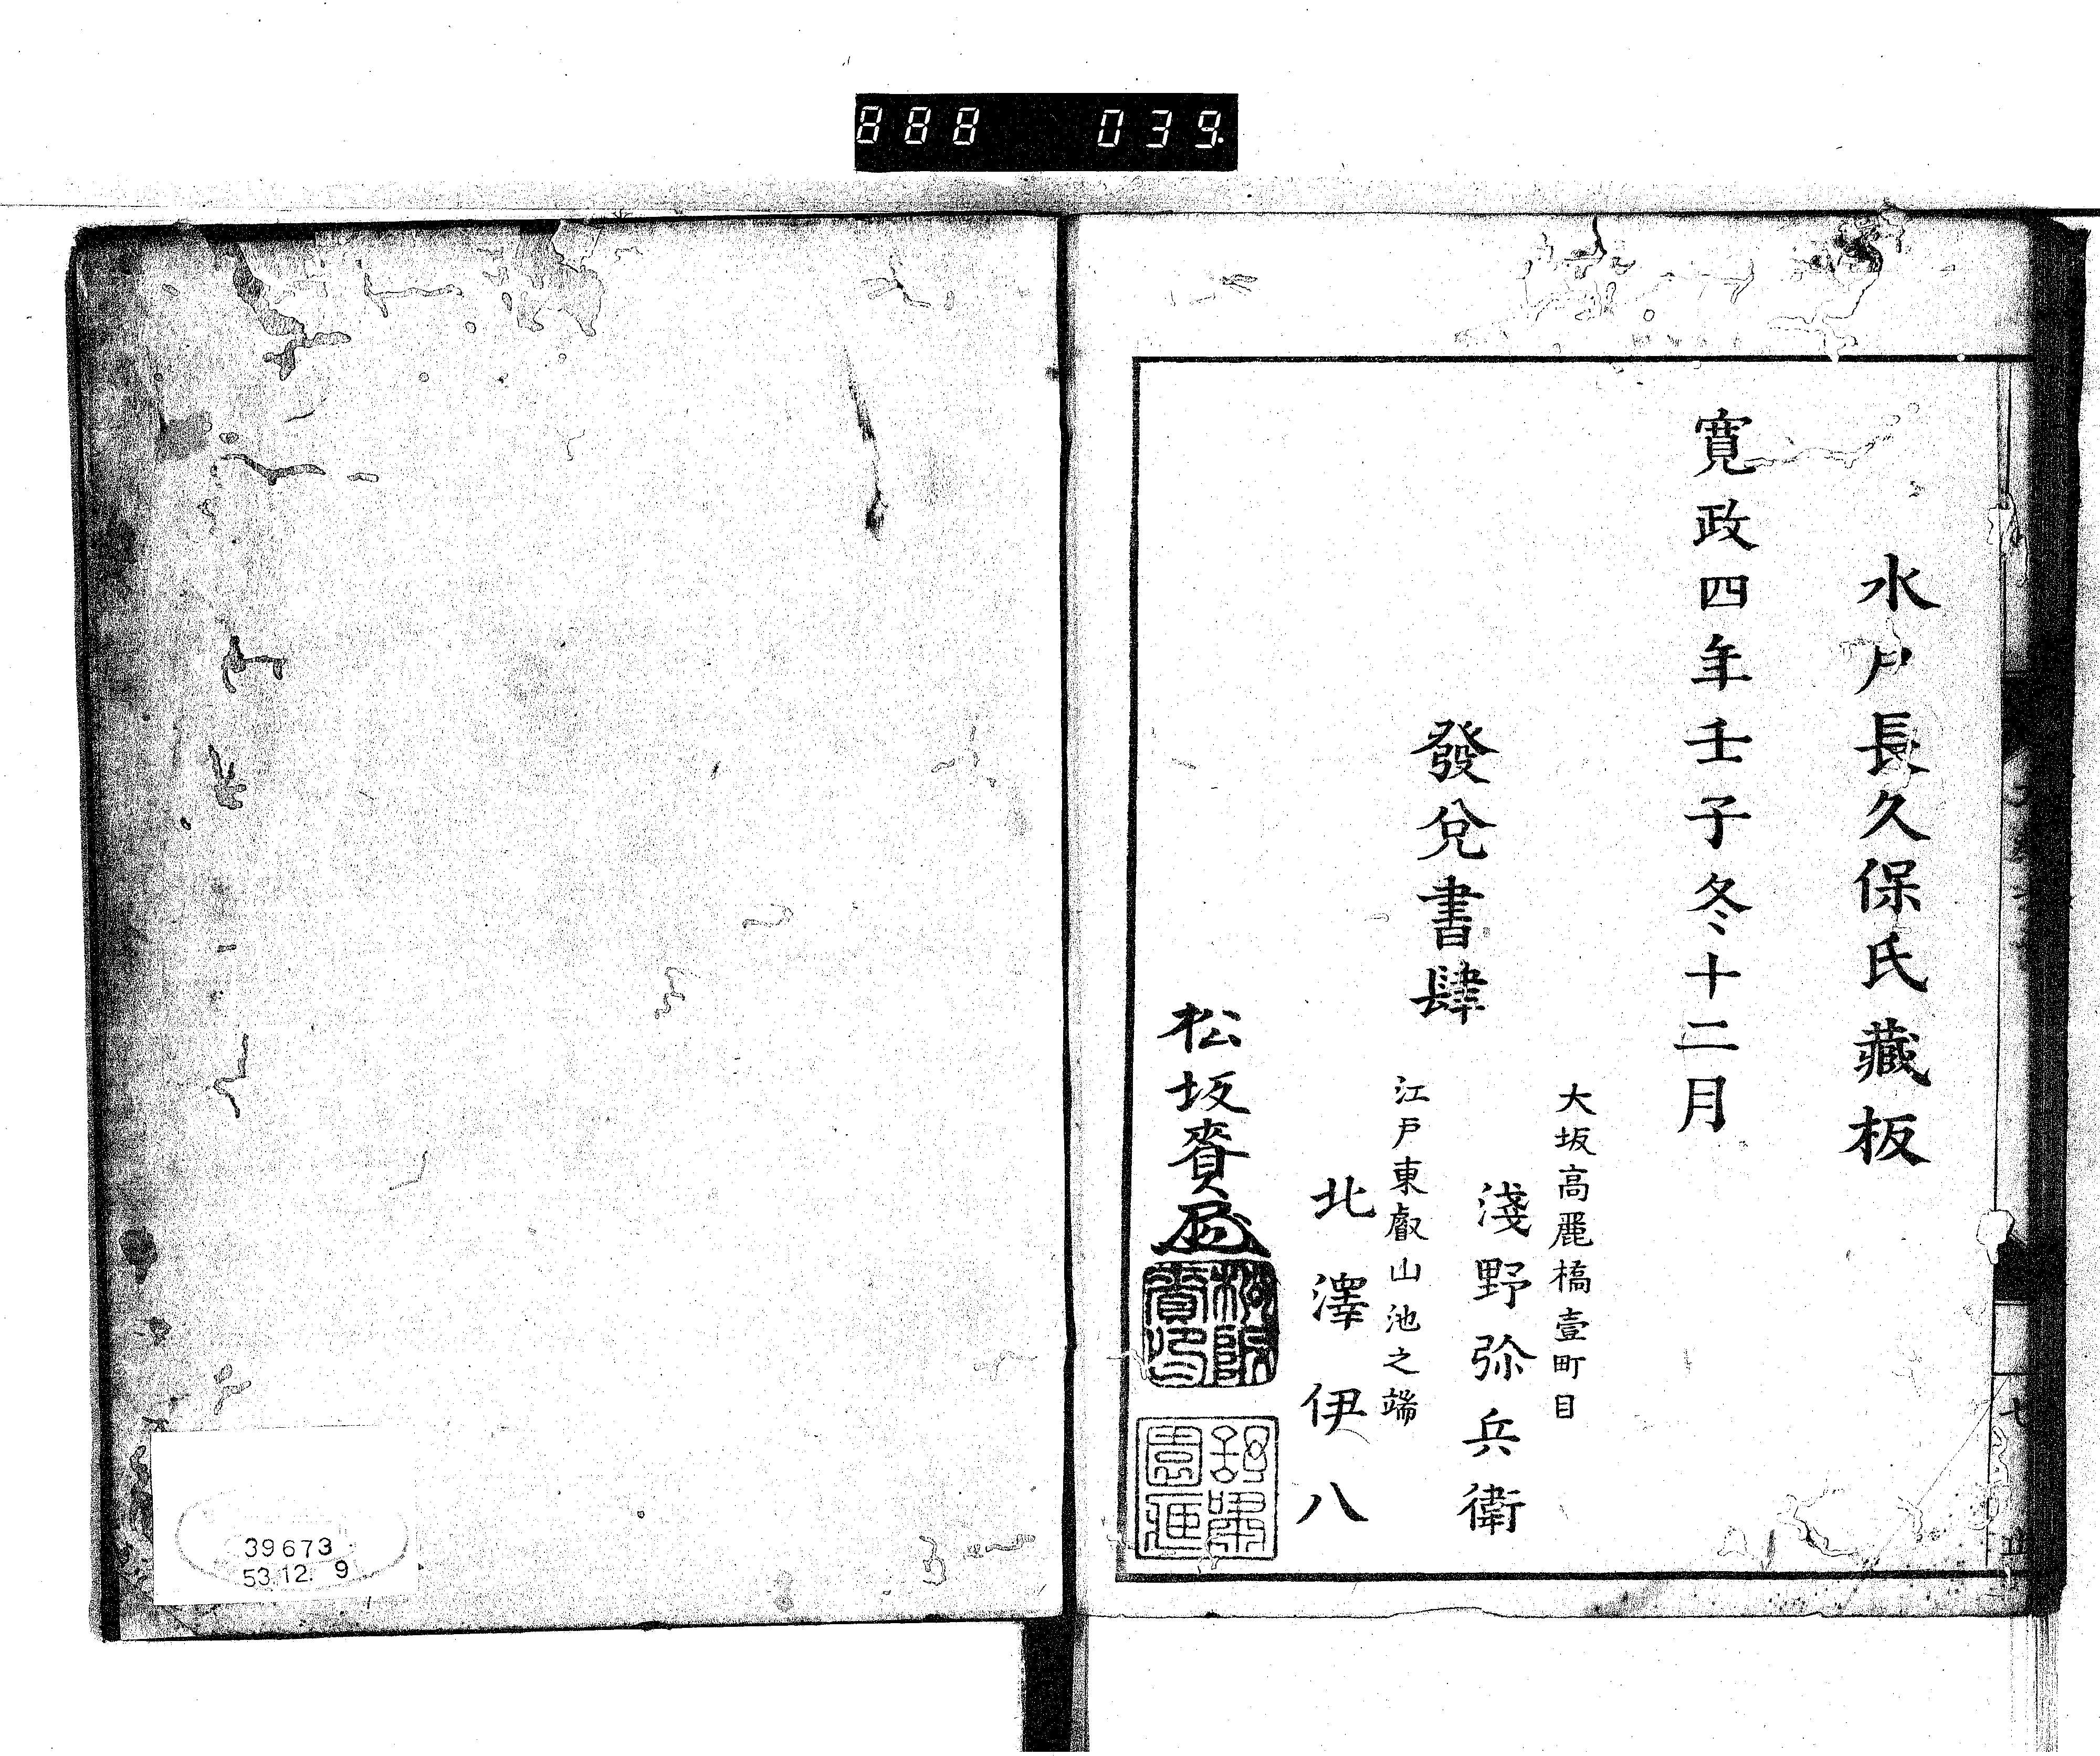 888 039.
水戶長久保氏藏板
寬政四年壬子冬十二月
大坂高麗橋壹町目
淺野弥兵衛
發兌書肆
江戶東叡山池之端
北澤伊八
松坂賚
39673
53.12. 9